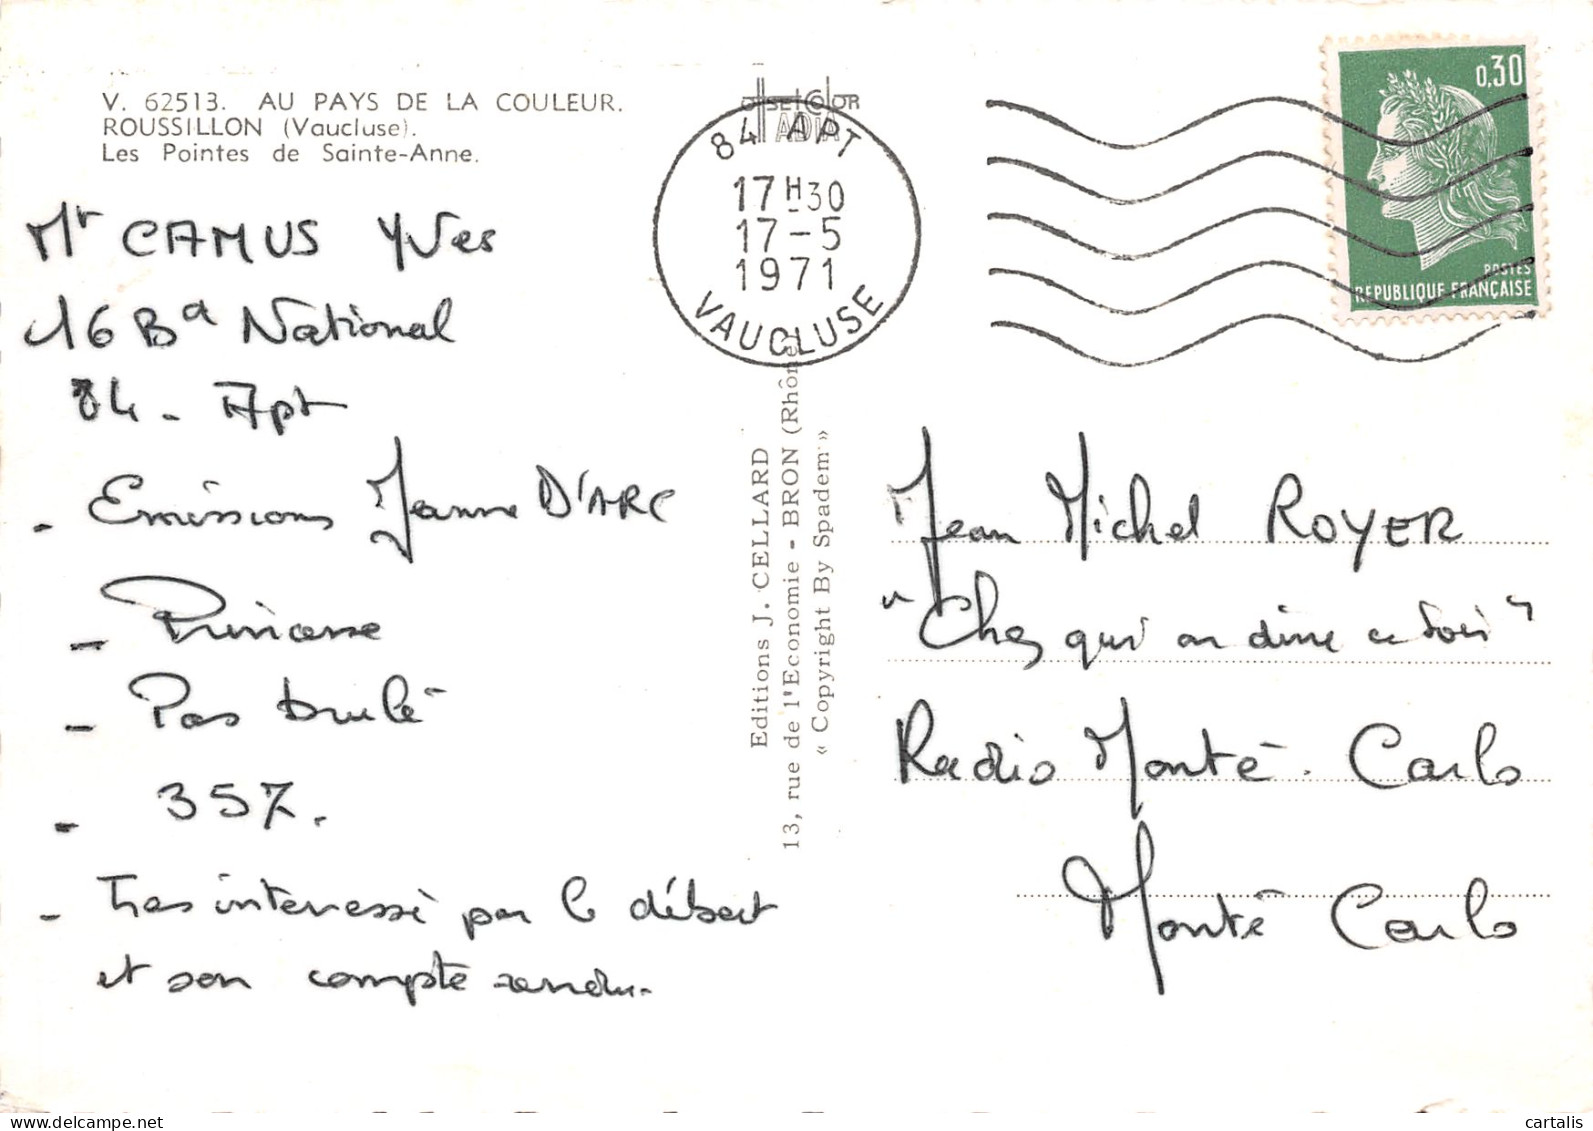 V. 62513. AU PAYS DE LA COULEUR.
ROUSSILLON (Vaucluse).
Les Pointes de Sainte-Anne.
Mr CAMUS Yves
16 Bd National
84 - Apt
- Emissions Jeanne D'ARC
- Princesse
- Pas brulé
- 357.
- Tres interressé par le débat
et son compte rendu.
OffsetColOR
ADIA
84 APT
17H30
17-5
1971
VAUCLUSE
Editions J. CELLARD
13, rue de l'Economie - BRON (Rhône)
« Copyright By Spadem »
0,30
POSTES
REPUBLIQUE FRANÇAISE
Jean Michel ROYER
"Chez qui on dine ce soir"
Radio Monté-Carlo
Monté Carlo
cartalis